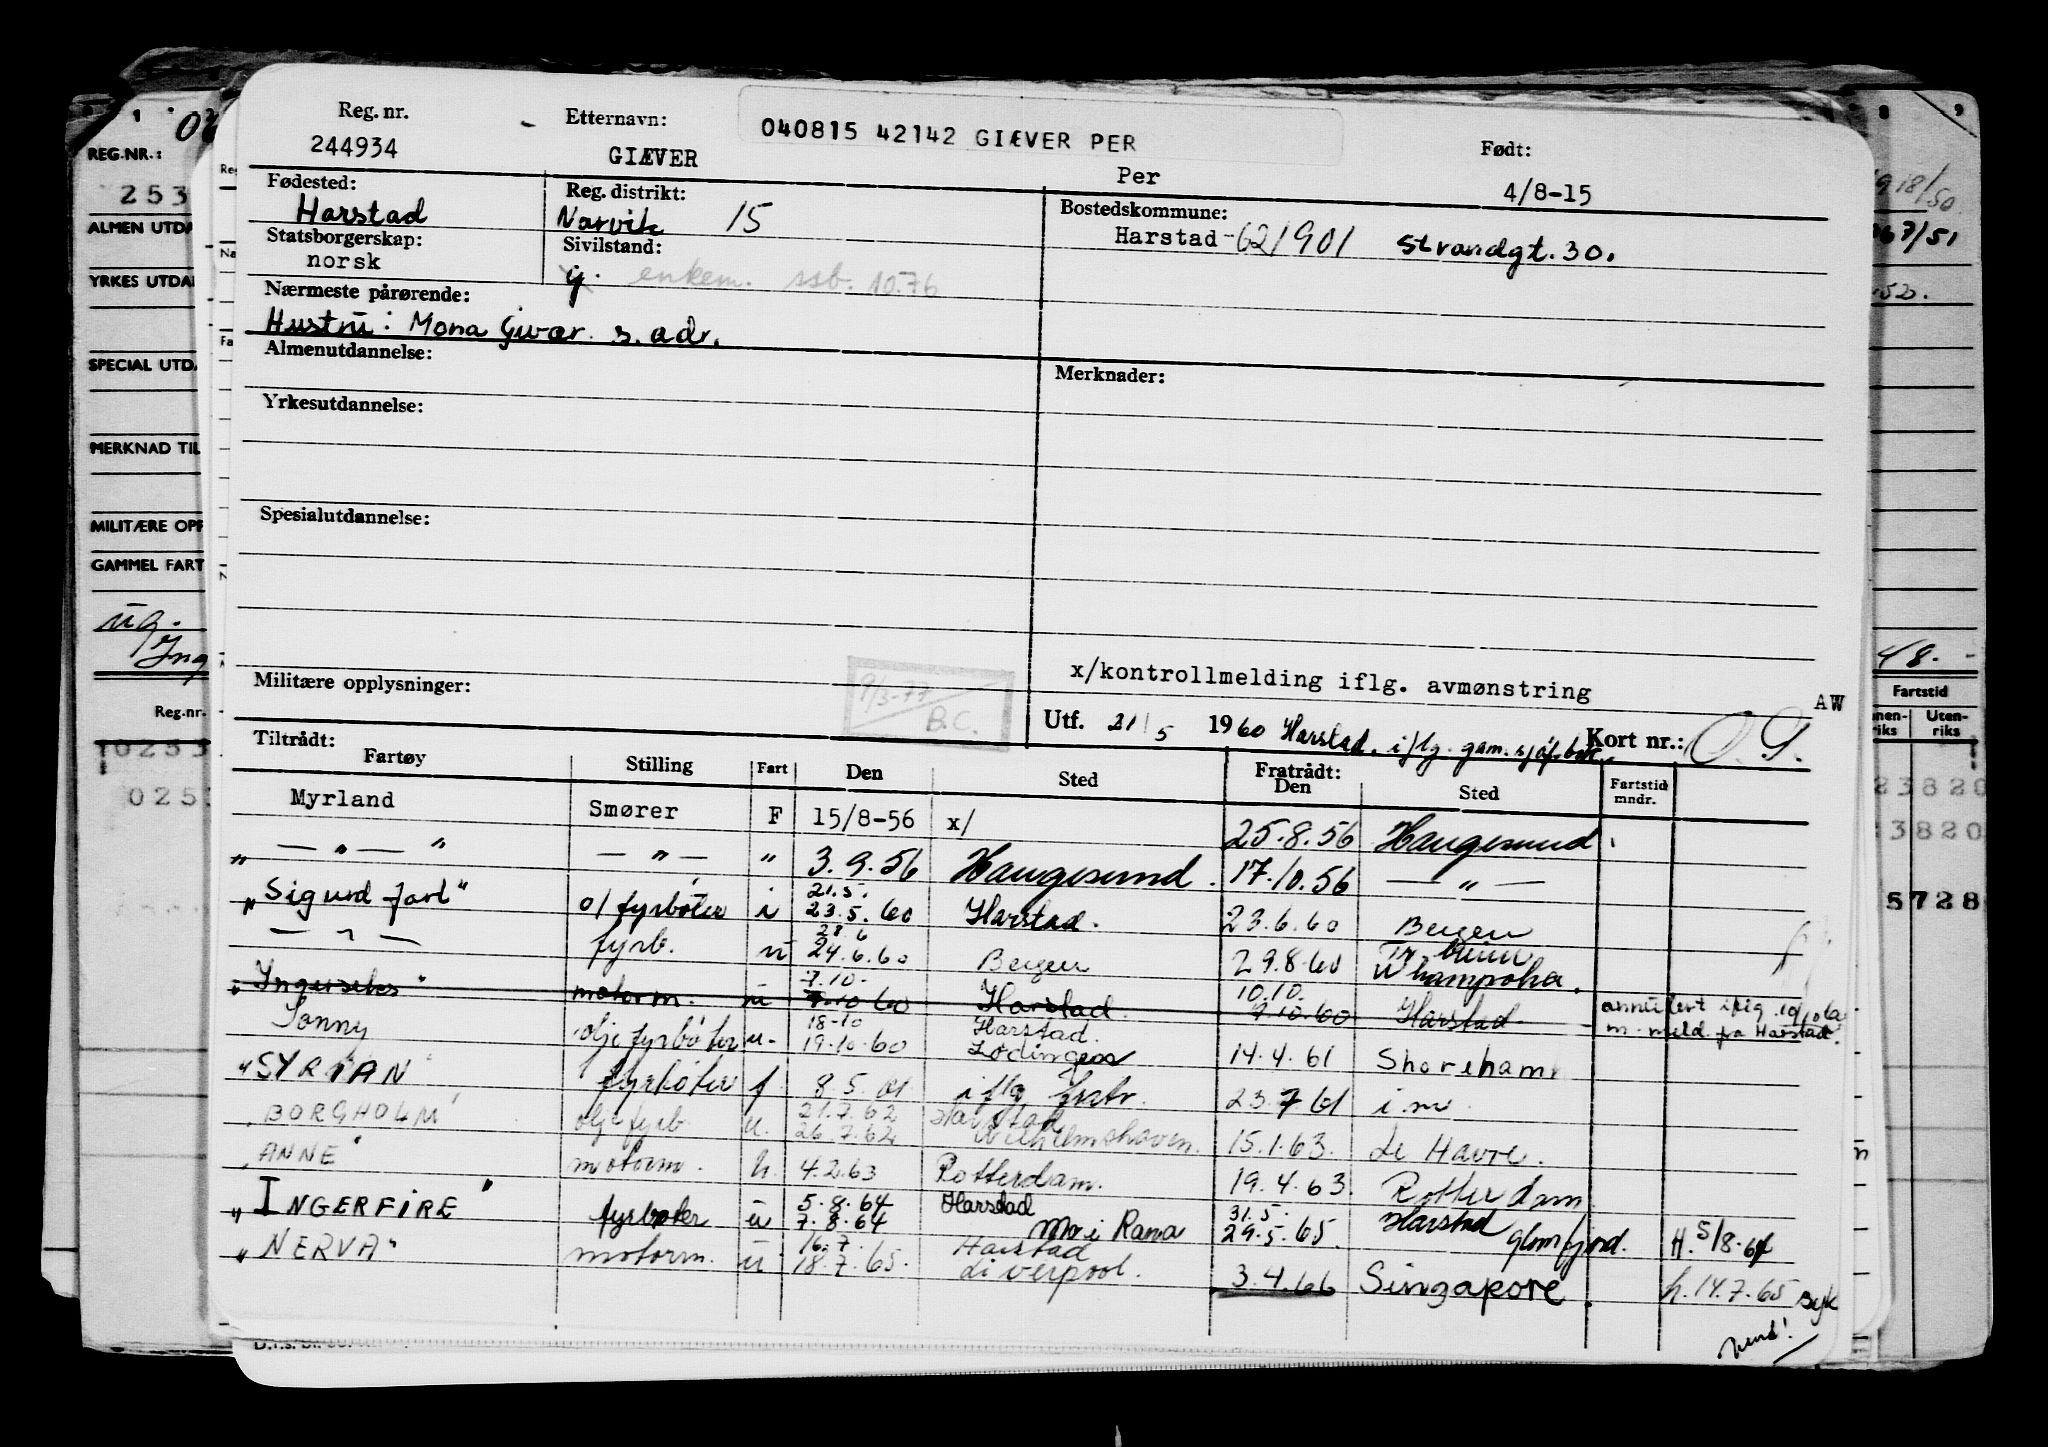 Reg. nr. Etternavn: 040815 42142 GIÆVER PER Født:
244934 GIÆVER Per 4/8-15
Fødested: Reg. distrikt: Bostedskommune:
Harstad Narvik 15 Harstad 62/901 Strandgt. 30.
Statsborgerskap: Sivilstand:
norsk g. enkem. ssb. 10.76
Nærmeste pårørende:
Hustru: Mona Givær. s. adr.
Almenutdannelse: Merknader:
Yrkesutdannelse:
Spesialutdannelse:
x/kontrollmelding iflg. avmønstring
Militære opplysninger: 9/3-77 B.C. AW
Utf. 21/5 1960 Harstad. iflg. gam. sjøf.bok. Kort nr.:
Tiltrådt: Fratrådt:
Fartøy Stilling Fart Den Sted Den Sted Fartstid mndr.
Myrland Smører F 15/8-56 x/ 25.8.56 Haugesund
" — " — " — " — " 3.9.56 Haugesund. 17.10.56 — " —
"Sigurd Jarl" o/fyrbøter i 21.5. 23.5.60 Harstad. 23.6.60 Bergen
— " — fyrb. u 24.6.60 Bergen 29.8.60 Whampoha.
" motorm. u 7.10. 7.10 60 Harstad. 10.10. 9.10.60 Harstad annulert iflg. 10/10 60
m. meld. fra Harstad.
Sonny oljefyrbøter u. 18-10 19.10.60 Harstad. Lødingen 14.4.61 Shoreham
"SYRIAN" fyrbøter f. 8.5.61 iflg. fratr. 23.7.61 i.m.
"BORGHOLM" olje fyrb. u. 21.7.62 26.7.62 Harstad Wilhelmshaven. 15.1.63. Le Havre.
"ANNE" motorm. u. 4.2.63 Rotterdam. 19.4.63. Rotterdam
"INGERFIRE" fyrbøter u 5.8.64 7.8.64 Harstad Mo i Rana 31.5. 29.5.65. Harstad Glomfjord. H. 5/8-64
"NERVA" motorm. u 16.7. 18.7.65. Harstad Liverpool. 3.4.66 Singapore. h. 14.7.65 syk
vend!
REG.NR.:
253
ALMEN UTDA
YRKES UTDA
SPECIAL UTDA
MERKNAD TIL
MILITÆRE OPP
GAMMEL FART
ug.
Reg.nr.
0253
0253
18/50
67/51
48.-
Fartstid
Uten-
riks
23820
3820
5728